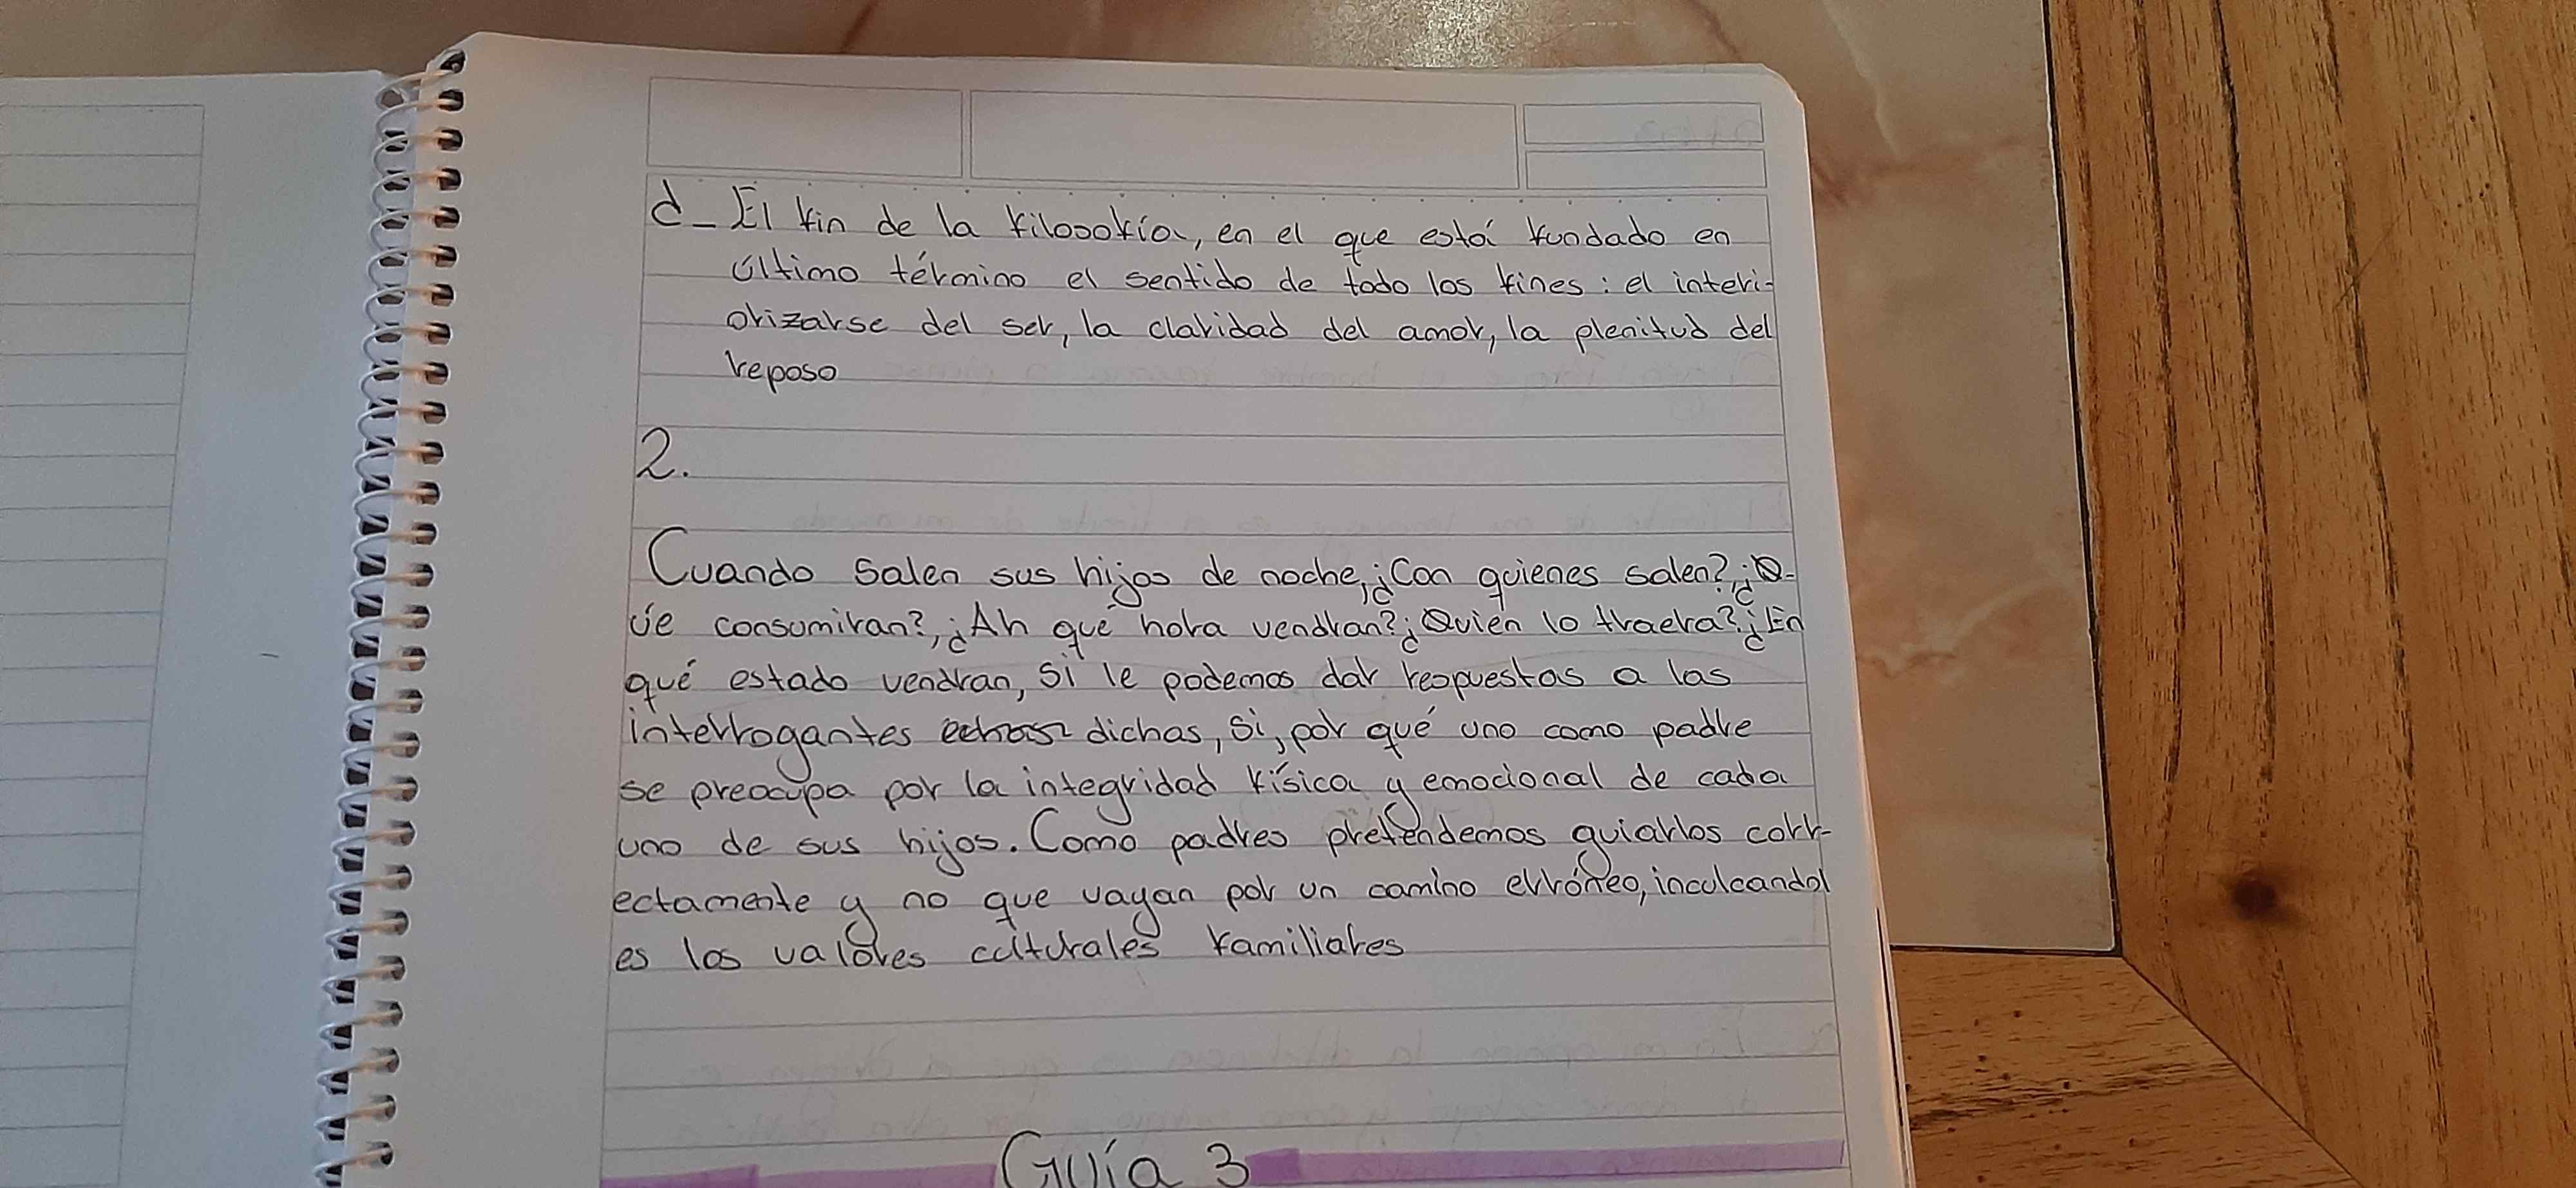 d_ El fin de la filosofía, en el que está fundado en
último término el sentido de todo los fines: el interi-
orizarse del ser, la claridad del amor, la plenitud del
reposo
2.
Cuando salen sus hijos de noche, ¿Con quienes salen?, ¿Q-
úe consumiran?, ¿Ah qué hora vendran? ¿Quién lo traera? ¿En
qué estado vendran, si le podemos dar respuestas a las
interrogantes dichas, si, por qué uno como padre
se preocupa por la integridad física y emocional de cada
uno de sus hijos. Como padres pretendemos guiarlos corr-
ectamente y no que vayan por un camino erróneo, inculcandol
es los valores culturales familiares
Guía 3